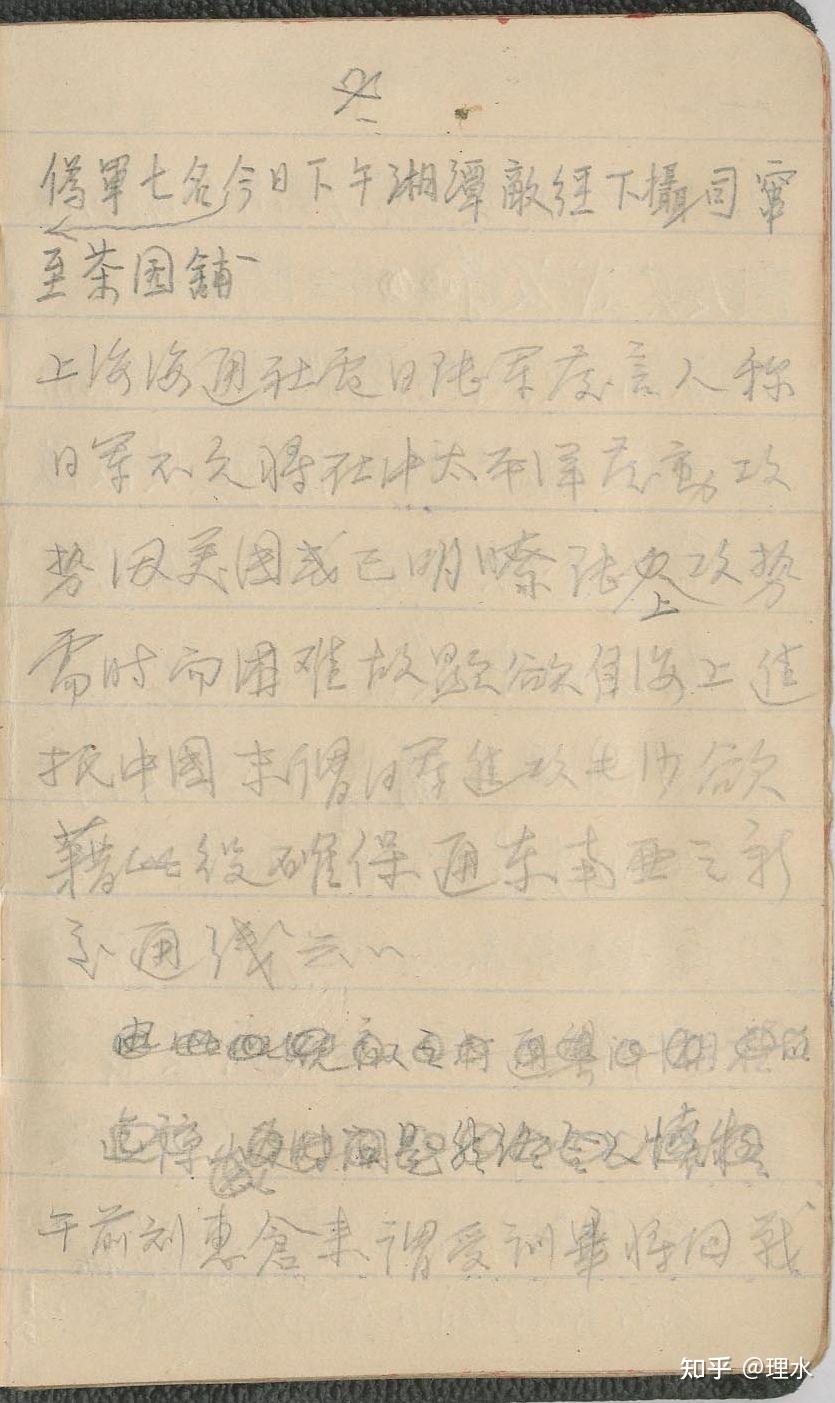 偽軍七名今日下午湘潭敵經下攝司竄
至茶園舖
上海海通社電日陸軍發言人称
日軍不久將在中太平洋發動攻
势因美國或已明瞭陸上攻势
需时而困难故显欲自海上進
抵中國末謂日軍進攻长沙欲
藉此役確保通东南亚之新
交通线云々
午前刘惠倉来謂受訓畢將回戰
知乎 @理水